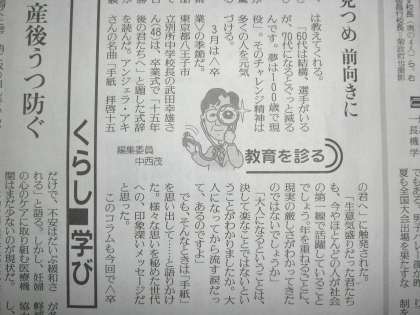 見つめ 前向きに
は教えてくれる。
「60代は結構、選手がいる
が、70代になるとぐっと減る
んです。夢は100歳で現
役」。そのチャレンジ精神は
多くの人を元気
づける。
3月は〈卒
業〉の季節だ。
東京都八王子市
立別所中学校長の武田幸雄さ
ん(48)は、卒業式で「十五年
後の君たちへ」と題した式辞
を読んだ。アンジェラ・アキ
さんの名曲「手紙 拝啓十五
教育を診る
編集委員
中西茂
夏も全国大会出場を果たすな
の君へ〉に触発された。
「生意気盛りだった君たち
も、今やほとんどの人が社会
の第一線で活躍していること
でしょう。年を重ねるごとに、
現実の厳しさがわかってきた
のではないでしょうか」
「大人になるということは、
決して楽なことではないとい
うことがわかりましたか。大
人になってから流す涙だっ
て、あるのですよ」
でも、そんなときは「手紙」
を思い出して…と語りかけ
た。様々な思いを秘めた世代
への、印象深いメッセージだ
と思った。
このコラムも今回で〈卒
くらし■学び
産後うつ防ぐ
だけで、不安はだいぶ緩和さ
れる」と語る。しかし、妊婦
の心のケアに取り組む医療機
関はまだ少ないのが現状だ。